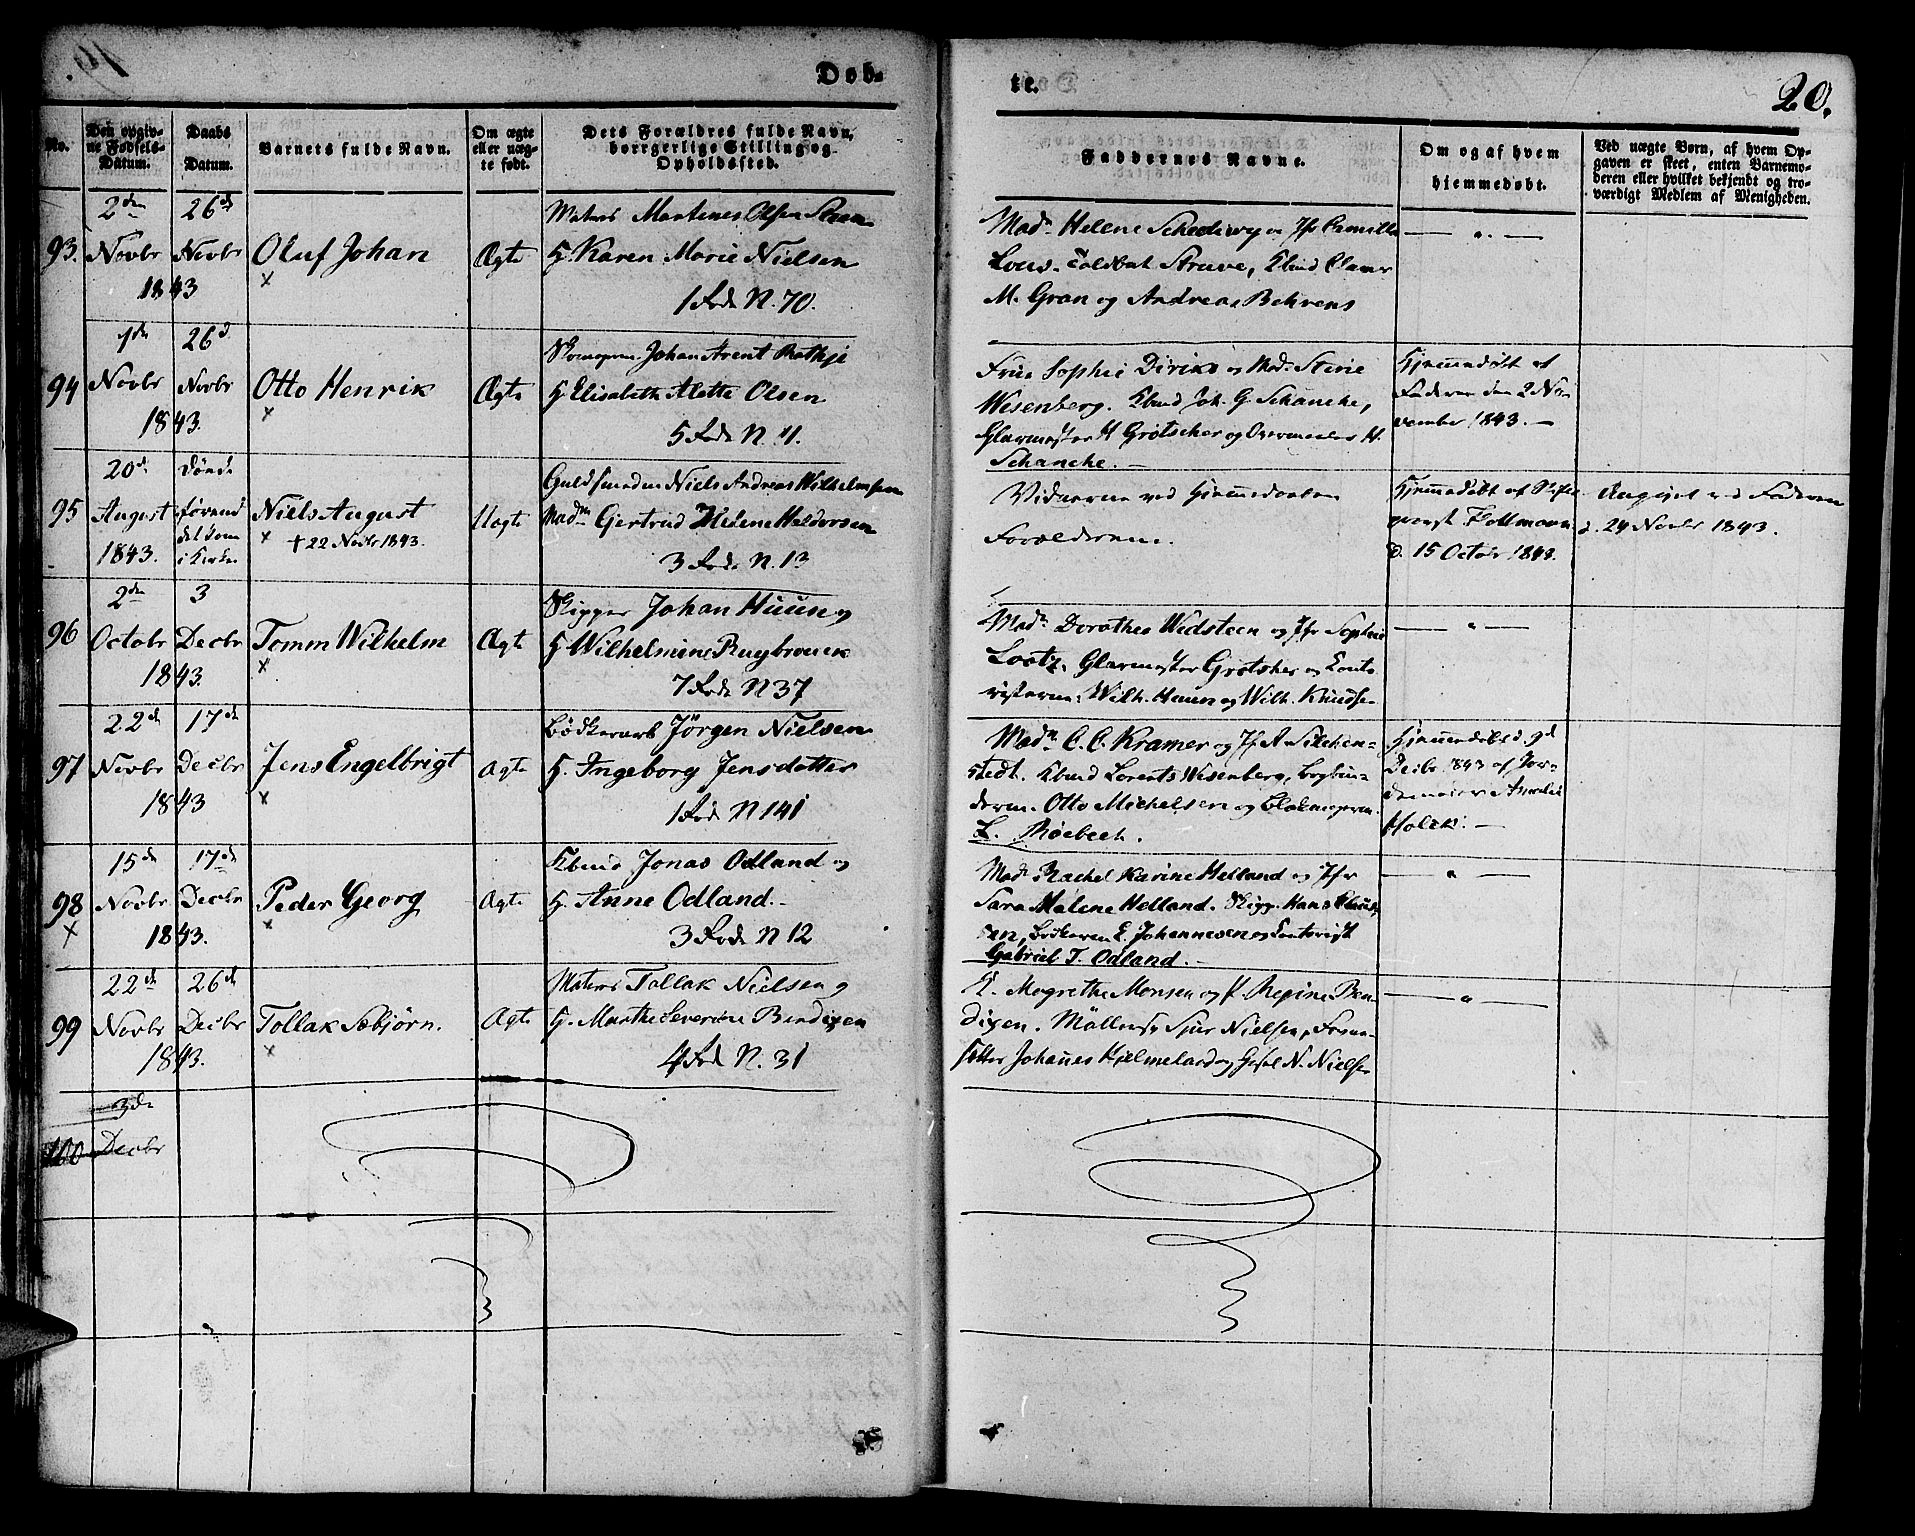 Døb-
te.
20.
No.
Den opgiv-
ne Fødsels-
Datum.
Daabs
Datum.
Barnets fulde Navn.
Om ægte
eller uæg-
te født.
Dets Forældres fulde Navn,
borgerlige Stilling og
Opholdssted.
Faddernes Navne.
Om og af hvem
hjemmedøbt.
Ved uægte Børn, af hvem Op-
gaven er skeet, enten Barnemo-
deren eller hvilket bekjendt og tro-
værdigt Medlem af Menigheden.
93.
2den
Novbr
1843
26de
Novbr
Oluf Johan
×
Ægte
Matros Martines Olsen
H. Karen Marie Nielsen
1 Rode N. 70.
Madm Helene Schediwy og Jfr Camilla
Lous. Toldbet Struve, Kbmd Claus
M. Gran og Andreas Behrens
94
1de
Novbr
1843.
26d
Novbr
Otto Henrik
×
Ægte
Johan Arent Rathje
H Elisabeth Alette Olsen
5 Rode N. 11.
Frue Sophie Diriks og Mad. Stine
Wesenberg. Kbmd Joh. G. Schancke,
Glarmester H Grötscher og H.
Schancke.
Hjemmedøbt af
Faderen den 2 No-
vember 1843.
95
20d
August
1843.
Døøde
førend
det kom
i Kirke
Niels August
× † 22 Novbr 1843.
Uægte
Guldsmeden Niels Andreas Wilhelmsen
Madm Gjertrud Helene Haldorsen
3 Rode N. 13
Vidnerne ved Hjemmedaaben
Forældrene.
Hjemmedøbt af
d. 15 Octobr 1843.
Angivet ved Faderen
d. 24 Novbr 1843.
96
2den
Octobr
1843.
3
Decbr
Tomm Wilhelm
×
Ægte
Skipper Johan Huun og
H Wilhelmine Ruybrouck
7 Rode N 37
Madm Dorothea Widsteen og Jfr Sophie
Lootz. Glarmester Grötscher og Konto-
risterne: Wilh. Huun og Wilh. Knudsen
97
22de
Novbr
1843
17de
Decbr
Jens Engelbrigt
×
Ægte
Bødkersv Jörgen Nielsen
H. Ingeborg Jensdatter
1 Rode N 141
Madm C. C. Kramer og Jfr A. Sechen-
stedt. Kbmd Lorents Wesenberg, Bogbin-
deren Otto Michelsen og
L. Röebech.
Hjemmedøbt d. 9d
Decbr. 1843 af Jor-
demoder Amalie
Holck.
98
×
15de
Novbr
1843.
17de
Decbr
Peder Georg
×
Ægte
Kbmd Jonas Odland og
H. Anne Odland.
3 Rode N 12
Madm Rachel Karine Helland og Jfr
Sara Malene Helland. Skipp. Hans Claus-
sen, Bødkeren E. Johannesen og Contorist
Gabriel T. Odland.
99
22de
Novbr
1843.
26de
Decbr
Tollak Sebjörn.
×
Ægte
Matros Tollak Nielsen og
H. Marthe Severine Bendixen
4 Rode N. 31
E. Magrethe Monsen og P. Regine Ben-
dixen. Nielsen,
Johanes Hjelmeland og N. Nielsen
100
3de
Decbr